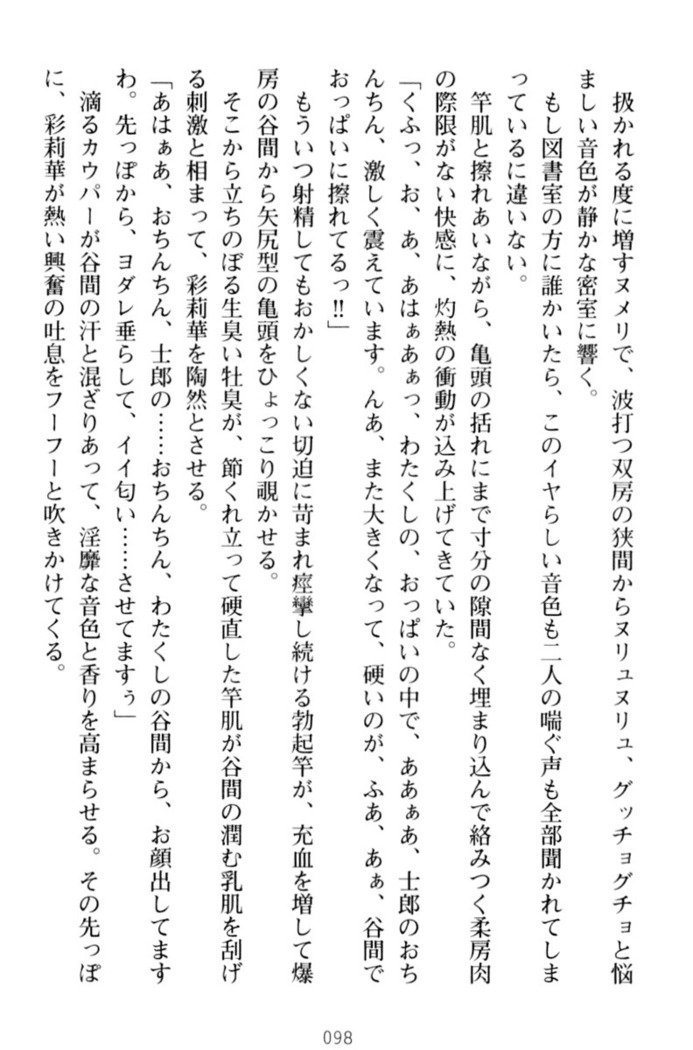 扱かれる度に増すヌメリで、波打つ双房の狭間からヌリュヌリュ、グッチョグチョと悩
ましい音色が静かな密室に響く。
もし図書室の方に誰かいたら、このイヤらしい音色も二人の喘ぐ声も全部聞かれてしま
っているに違いない。
竿肌と擦れあいながら、亀頭の括れにまで寸分の隙間なく埋まり込んで絡みつく柔房肉
の際限がない快感に、灼熱の衝動が込み上げてきていた。
「くふっ、お、あ、あはぁあぁっ、わたくしの、おっぱいの中で、ああぁあ、士郎のおち
んちん、激しく震えています。んあ、また大きくなって、硬いのが、ふあ、あぁ、谷間で
おっぱいに擦れてるっ!!」
もういつ射精してもおかしくない切迫に苛まれ痙攣し続ける勃起竿が、充血を増して爆
房の谷間から矢尻型の亀頭をひょっこり覗かせる。
そこから立ちのぼる生臭い牡臭が、節くれ立って硬直した竿肌が谷間の潤む乳肌を刮げ
る刺激と相まって、彩莉華を陶然とさせる。
「あはぁあ、おちんちん、士郎の……おちんちん、わたくしの谷間から、お顔出してます
わ。先っぽから、ヨダレ垂らして、イイ匂い……させてますぅ」
滴るカウパーが谷間の汗と混ざりあって、淫靡な音色と香りを高まらせる。その先っぽ
に、彩莉華が熱い興奮の吐息をフーフーと吹きかけてくる。
098